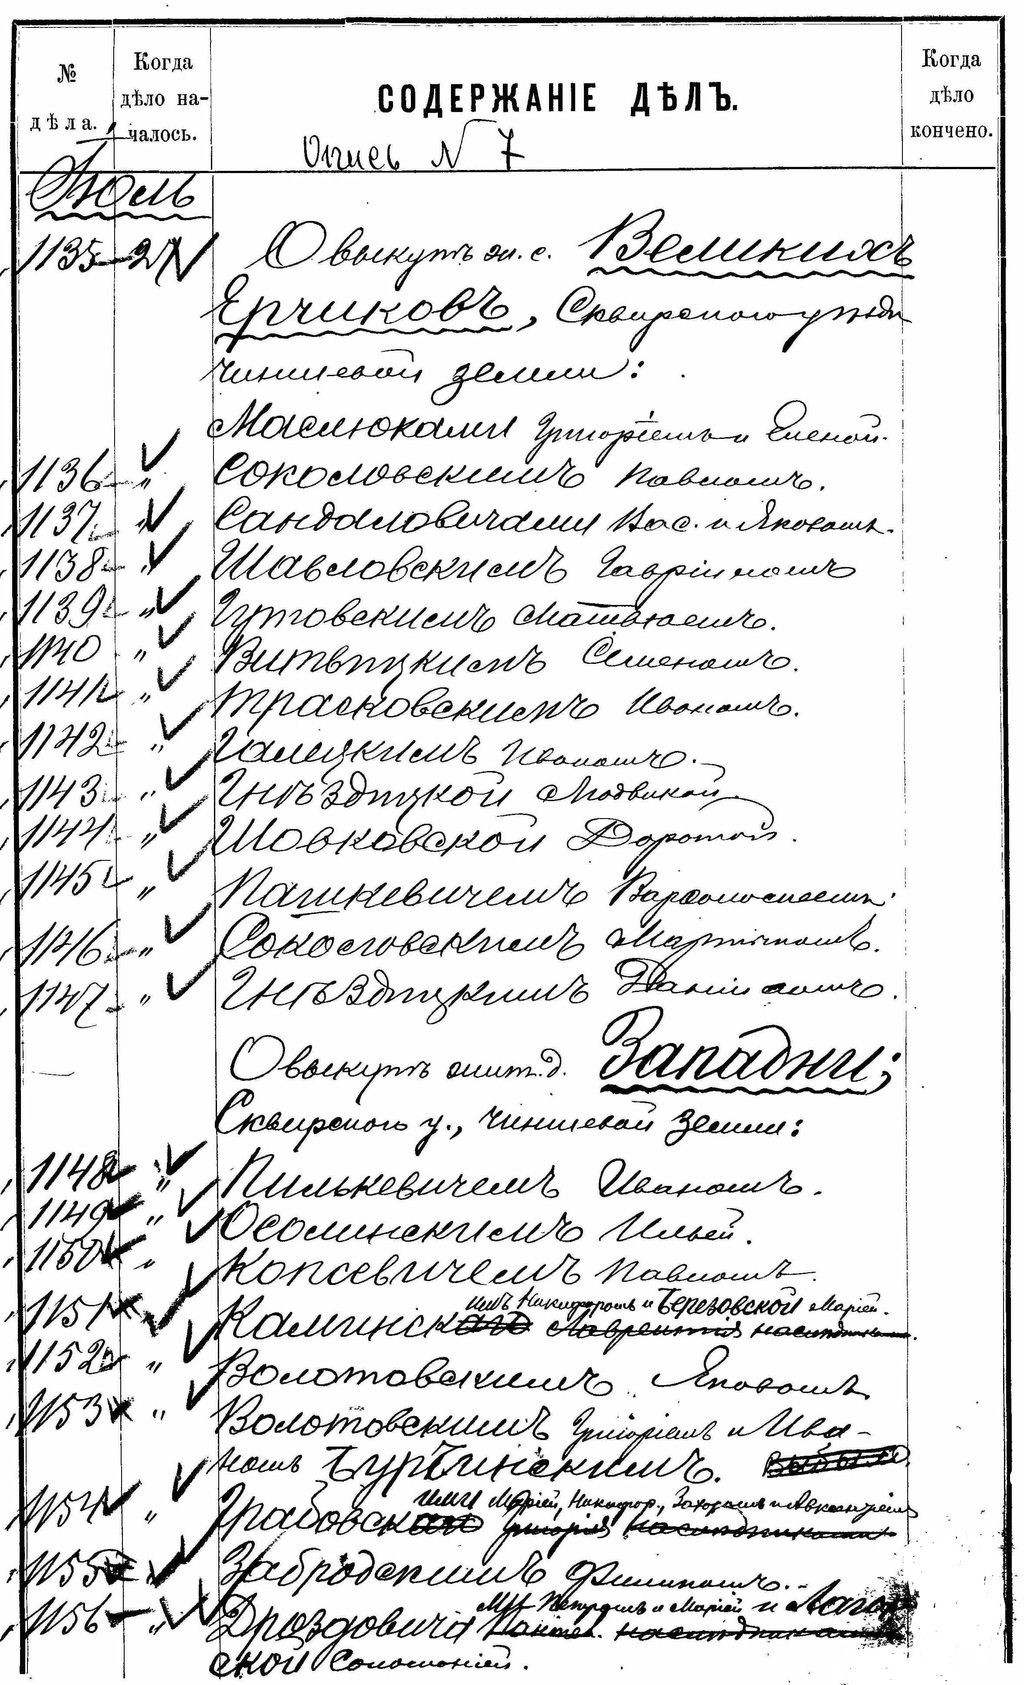 № дѣла.
Когда дѣло началось.
СОДЕРЖАНІЕ ДѢЛЪ.
Когда дѣло кончено.
Опись N 7
Іюль
1135 27 О выкупѣ жи. с. Великихъ
Ерчиковъ, Сквирского уѣзда
чиншевой земли:
Маслюками Григоріемъ и Еленой.
1136 " Соколовскимъ Павломъ.
1137 " Сандаловичами Вас. и Яковомъ.
1138 " Шавловскимъ Гавріиломъ
1139 " Гутовскимъ Матвѣемъ.
1140 " Витвицкимъ Семеномъ.
1141 " Трасковскимъ Иваномъ.
1142 " Галецкимъ Иваномъ.
1143 " Гнѣздицкой Людвикой
1144 " Шовковской Доротой.
1145 " Пашкевичемъ Варфоломеемъ.
1146 " Соколовскимъ Мартиномъ.
1147 " Гнѣздицкимъ Даніиломъ.
О выкупѣ жит. д. Западни;
Сквирского у., чиншевой земли:
1148 " Пилькевичемъ Иваномъ.
1149 " Осолинскимъ Ильей.
1150 " Копсевичемъ Павломъ.
имъ Никифоромъ и Березовской Маріей.
1151 " Каминскаго Лаврентія наслѣдниками.
1152 " Волотовскимъ Яковомъ
1153 " Волотовскимъ Григоріемъ и Ива-
номъ Бурчинскимъ.
ими Маріей, Никифор., Захаромъ и Авксентіемъ
1154 " Грабовскаго Григорія наслѣдниками
1155 " Забродскимъ Филипомъ.
ми Петромъ и Маріей и Лагов
1156 " Дроздовича наслѣдниками
ской Соломоніей.